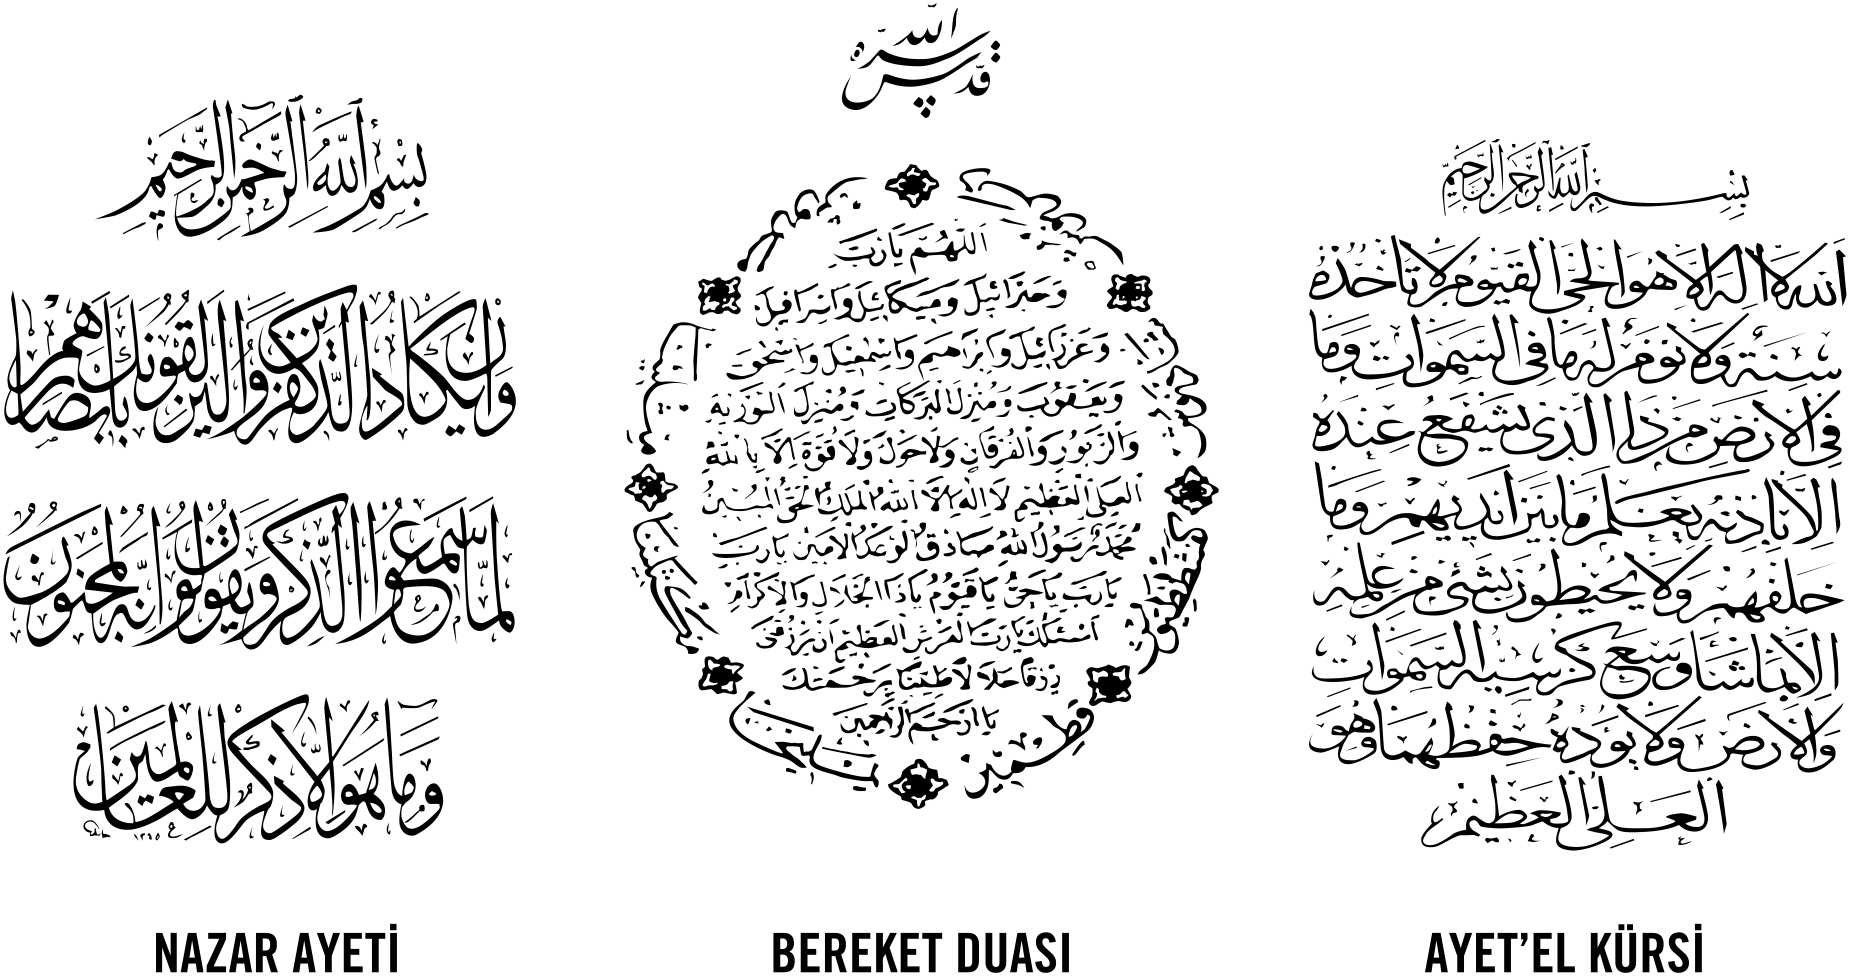 بسم الله الرحمن الرحيم
وان يكاد الذين كفروا ليزلقونك بابصارهم
لما سمعوا الذكر ويقولون انه لمجنون
وما هو الا ذكر للعالمين
NAZAR AYETİ
قدس الله سره
اللهم يا رب
وجبرائيل وميكائيل واسرافيل
وعزرائيل وابراهيم واسمعيل واسحق
ويعقوب ومنزل البركات ومنزل التورية
والزبور والفرقان ولا حول ولا قوة الا بالله
العلى العظيم لا اله الا الله الملك الحق المبين
محمد رسول الله صادق الوعد الامين يا رب
يا رب يا حى يا قيوم يا ذا الجلال والاكرام
اسئلك يا رب العرش العظيم ان ترزقنى
رزقا حلالا طيبا برحمتك
يا ارحم الراحمين
BEREKET DUASI
بسم الله الرحمن الرحيم
الله لا اله الا هو الحى القيوم لا تأخذه
سنة ولا نوم له ما فى السموات وما
فى الارض من ذا الذى يشفع عنده
الا باذنه يعلم ما بين ايديهم وما
خلفهم ولا يحيطون بشئ من علمه
الا بما شاء وسع كرسيه السموات
والارض ولا يؤده حفظهما وهو
العلى العظيم
AYET'EL KÜRSİ